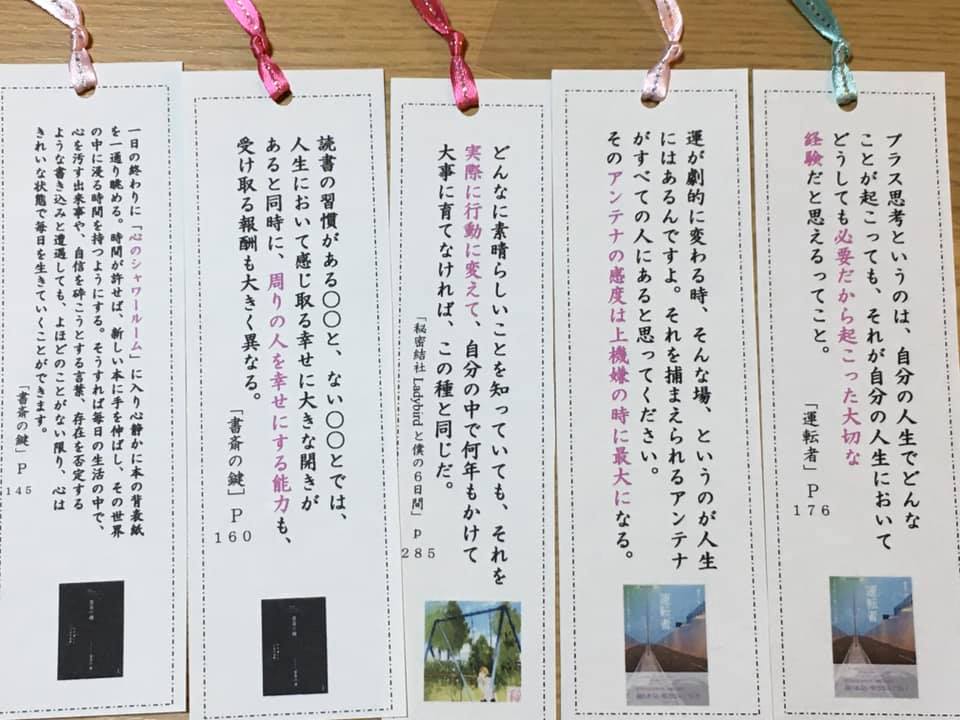 プラス思考というのは、自分の人生でどんな
ことが起こっても、それが自分の人生において
どうしても必要だから起こった大切な
経験だと思えるってこと。
「運転者」P
176
運転者
運が劇的に変わる時、そんな場、というのが人生
にはあるんですよ。それを捕まえられるアンテナ
がすべての人にあると思ってください。
そのアンテナの感度は上機嫌の時に最大になる。
運転者
どんなに素晴らしいことを知っていても、それを
実際に行動に変えて、自分の中で何年もかけて
大事に育てなければ、この種と同じだ。
「秘密結社 Ladybird と僕の6日間」p
285
読書の習慣がある〇〇と、ない〇〇とでは、
人生において感じ取る幸せに大きな開きが
あると同時に、周りの人を幸せにする能力も、
受け取る報酬も大きく異なる。
「書斎の鍵」P
160
書斎の鍵
一日の終わりに「心のシャワールーム」に入り心静かに本の背表紙
を一通り眺める。時間が許せば、新しい本に手を伸ばし、その世界
の中に浸る時間を持つようにする。そうすれば毎日の生活の中で、
心を汚す出来事や、自信を砕こうとする言葉、存在を否定する
ような書き込みと遭遇しても、よほどのことがない限り、心は
きれいな状態で毎日を生きていくことができます。
「書斎の鍵」P
145
書斎の鍵